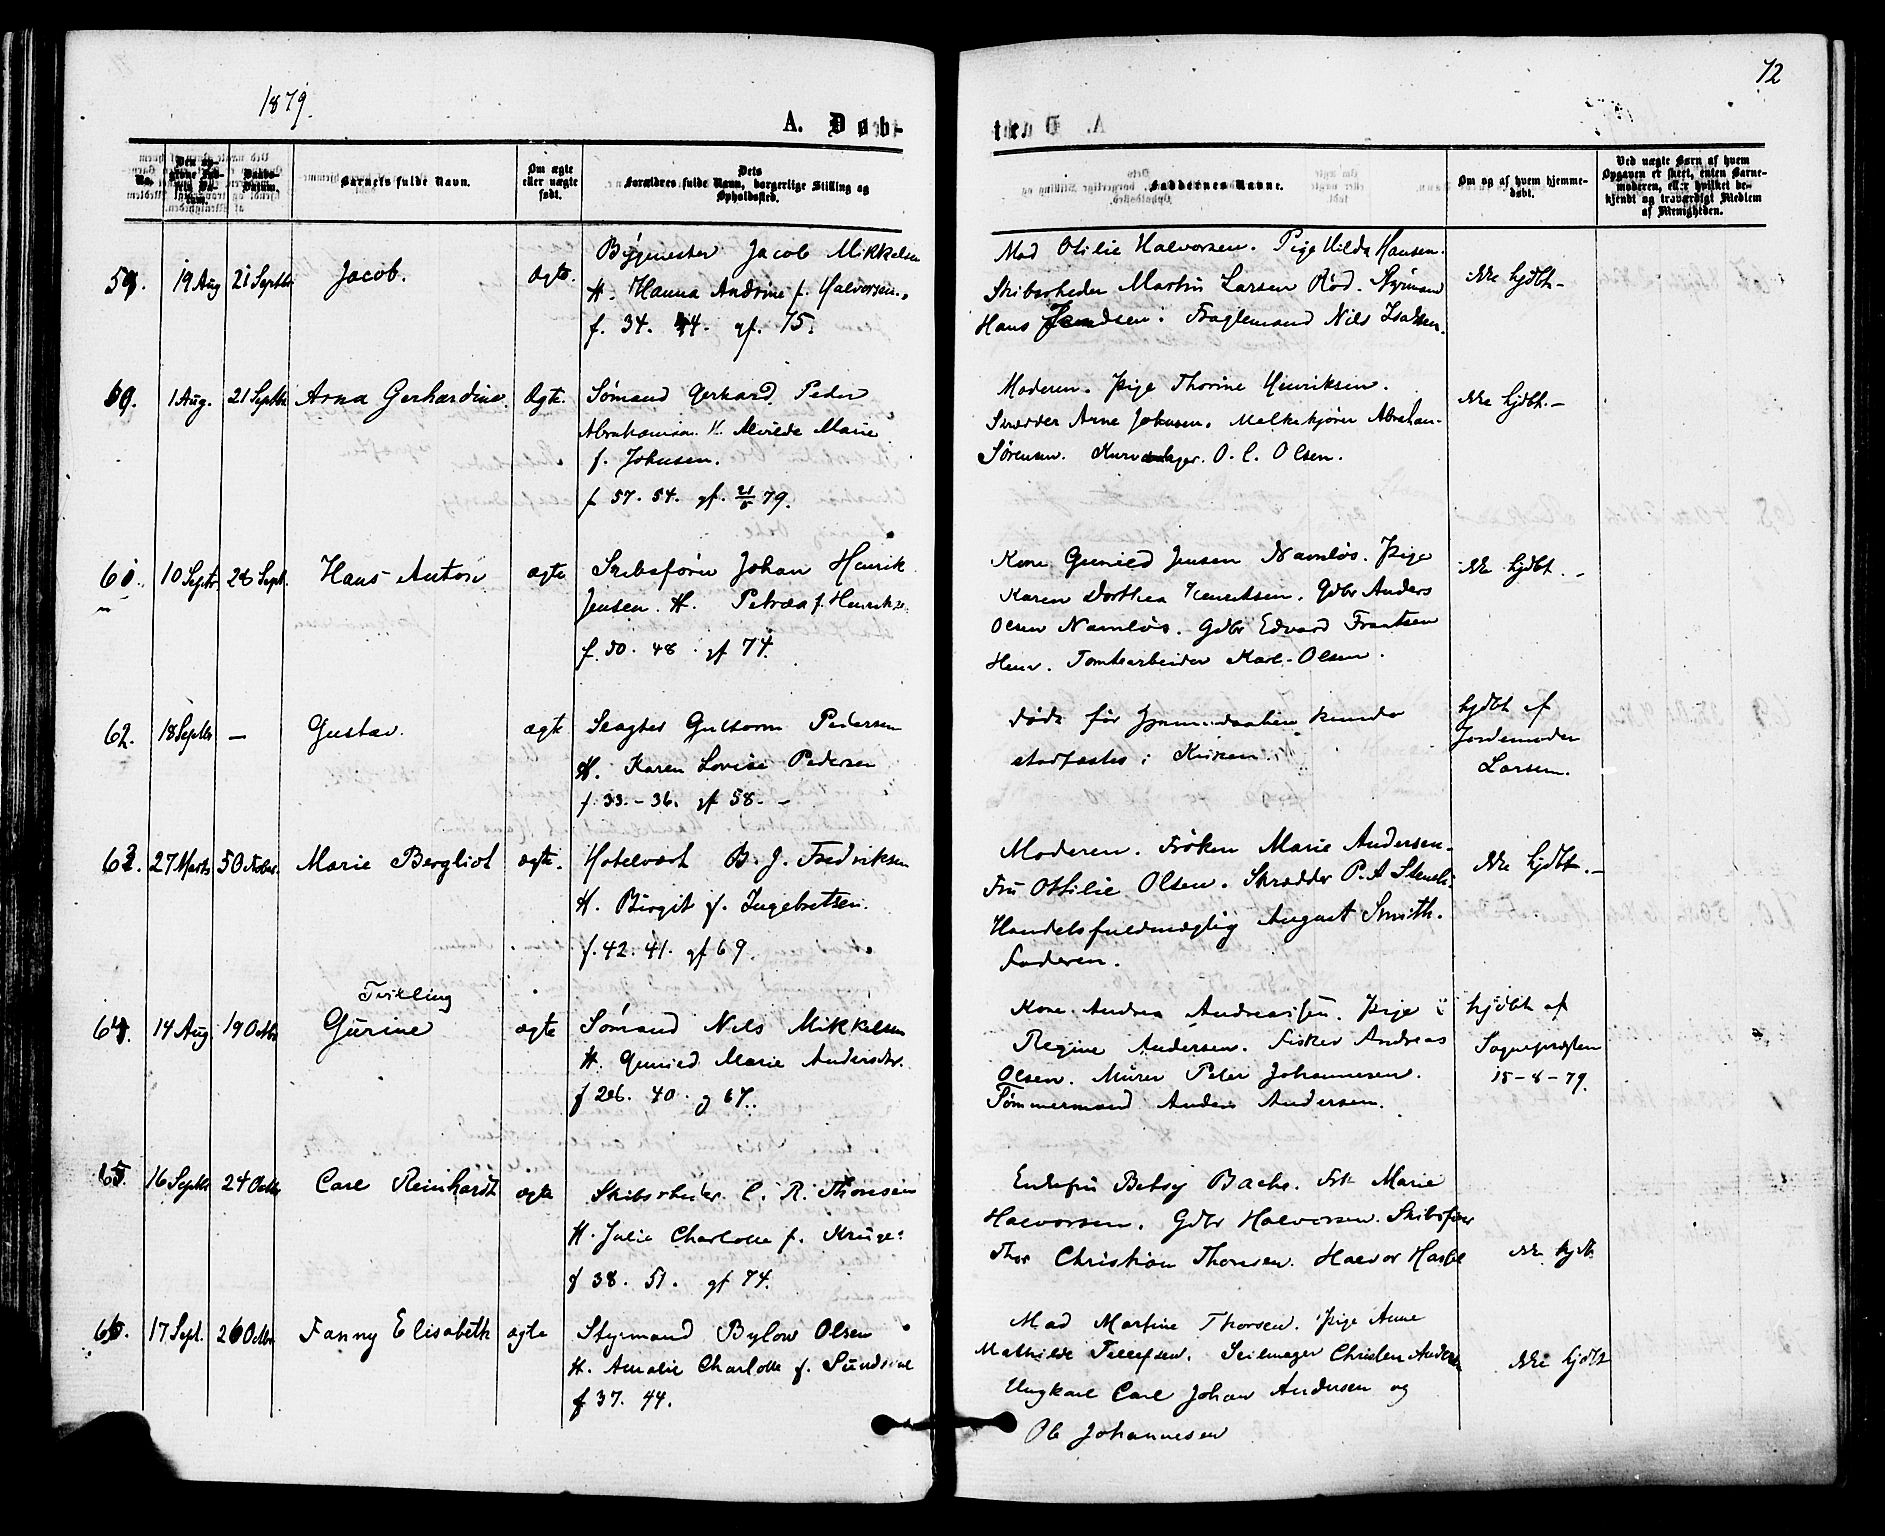 1879.
72
A. Døb-
te.
No.
Den opgivne Fødsels Datum.
Daabs-Datum.
Barnets fulde Navn.
Om ægte eller uægte født.
Dets Forældres fulde Navn, borgerlige Stilling og Opholdssted.
Faddernes Navne.
Om og af hvem hjemmedøbt.
Ved uægte Børn af hvem Opgaven er skeet, enten Barnemoderen, eller hvilket bekjendt og troværdigt Medlem af Menigheden.
59. 19 Aug 21 Septbr Jacob. ægte.
Bygmester Jacob Mikkelsen
H. Hanna Andrine f. Halvorsen.
f. 34. 44. gf. 75.
Mad Otilie Halvorsen. Pige Hilda Hansen.
Skibsrheder Martin Larsen Rød. Styrmand
Hans . Fragtemand Nils Isaksen.
ikke hjdbt.
60. 1 Aug. 21 Septbr Anna Gerhardine. ægte.
Sømand Gerhard Peder
Abrahamsen H. Alvilde Marie
f. Johnsen.
f 57. 54. gf. 21/5 79.
Moderen. Pige Thorine Henriksen.
Skrædder Arne Johnsen. Abraham
Sørensen. O. C. Olsen.
ikke hjdbt.
61. 10 Septr. 28 Sept. Hans Anton ægte
Skibsfører Johan Henrik
Jensen. H. Petrea f. Henriks.
f. 50. 48. gf 74.
Kone Gunild Jensen Namløs. Pige
Karen Dorthea Henriksen. Gdbr Anders
Olsen Namløs. Gdbr Edvard Frantsen
Tomtearbeider Karl Olsen.
ikke hjdbt.
62. 18 Septbr — Gustav. ægte
Slagter Guttorm Pedersen
H. Karen Lovise Pedersen
f. 33. - 36. gf 58. -
døde før hjemmedaaben kunde
stadfæstes i Kirken.
hjdbt af
Jordemoder
Larsen.
63. 27 Marts 5 October. Marie Bergliot ægte.
Hotelvært B. J. Fredriksen
H. Birgit f. Ingebretsen.
f. 42. 41. gf 69.
Moderen. Frøken Marie Andersen.
Fru Ottilie Olsen. Skrædder P. A
Handelsfuldmægtig August Smith.
Faderen.
ikke hjdbt.
64. 14 Aug. 19 Octbr Tvilling
Gurine ægte
Sømand Nils Mikkelsen
H. Gunild Marie Andersdtr.
f 26. 40. g 67.
Kone Andrea Andreassen. Pige
Regine Andersen. Fisker Andreas
Olsen. Murer Peter Johannesen.
Tømmermand Anders Andersen.
hjdbt af
Sognepræsten
15-8-79.
65. 16 Septbr 24 Octbr Carl Reinhardt ægte
Skibsrheder C. R. Thorsen
H. Julie Charlotte f. Krüge:
f 38. 51. gf 74.
Enkefru Betsy Bache. Frk Marie
Halvorsen. Gdbr Halvorsen. Skibsfører
Thor Christian Thorsen. Halvor
ikke hjdbt.
66. 17 Sept. 26 Octbr Fanny Elisabeth ægte
Styrmand Bylow Olsen
H. Amalie Charlotte f. Sundsval
f 37. 44.
Mad Martine Thorsen. Pige Anne
Mathilde Tellefsen. Seilmager Christen Andersen
Ungkarl Carl Johan Andersen og
Ole Johannesen
ikke hjdbt